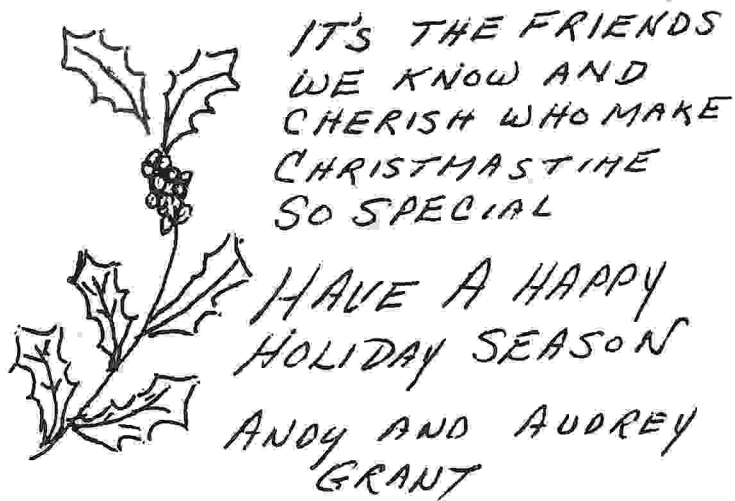 IT'S THE FRIENDS
WE KNOW AND
CHERISH WHO MAKE
CHRISTMASTIME
SO SPECIAL
HAVE A HAPPY
HOLIDAY SEASON
ANDY AND AUDREY
GRANT